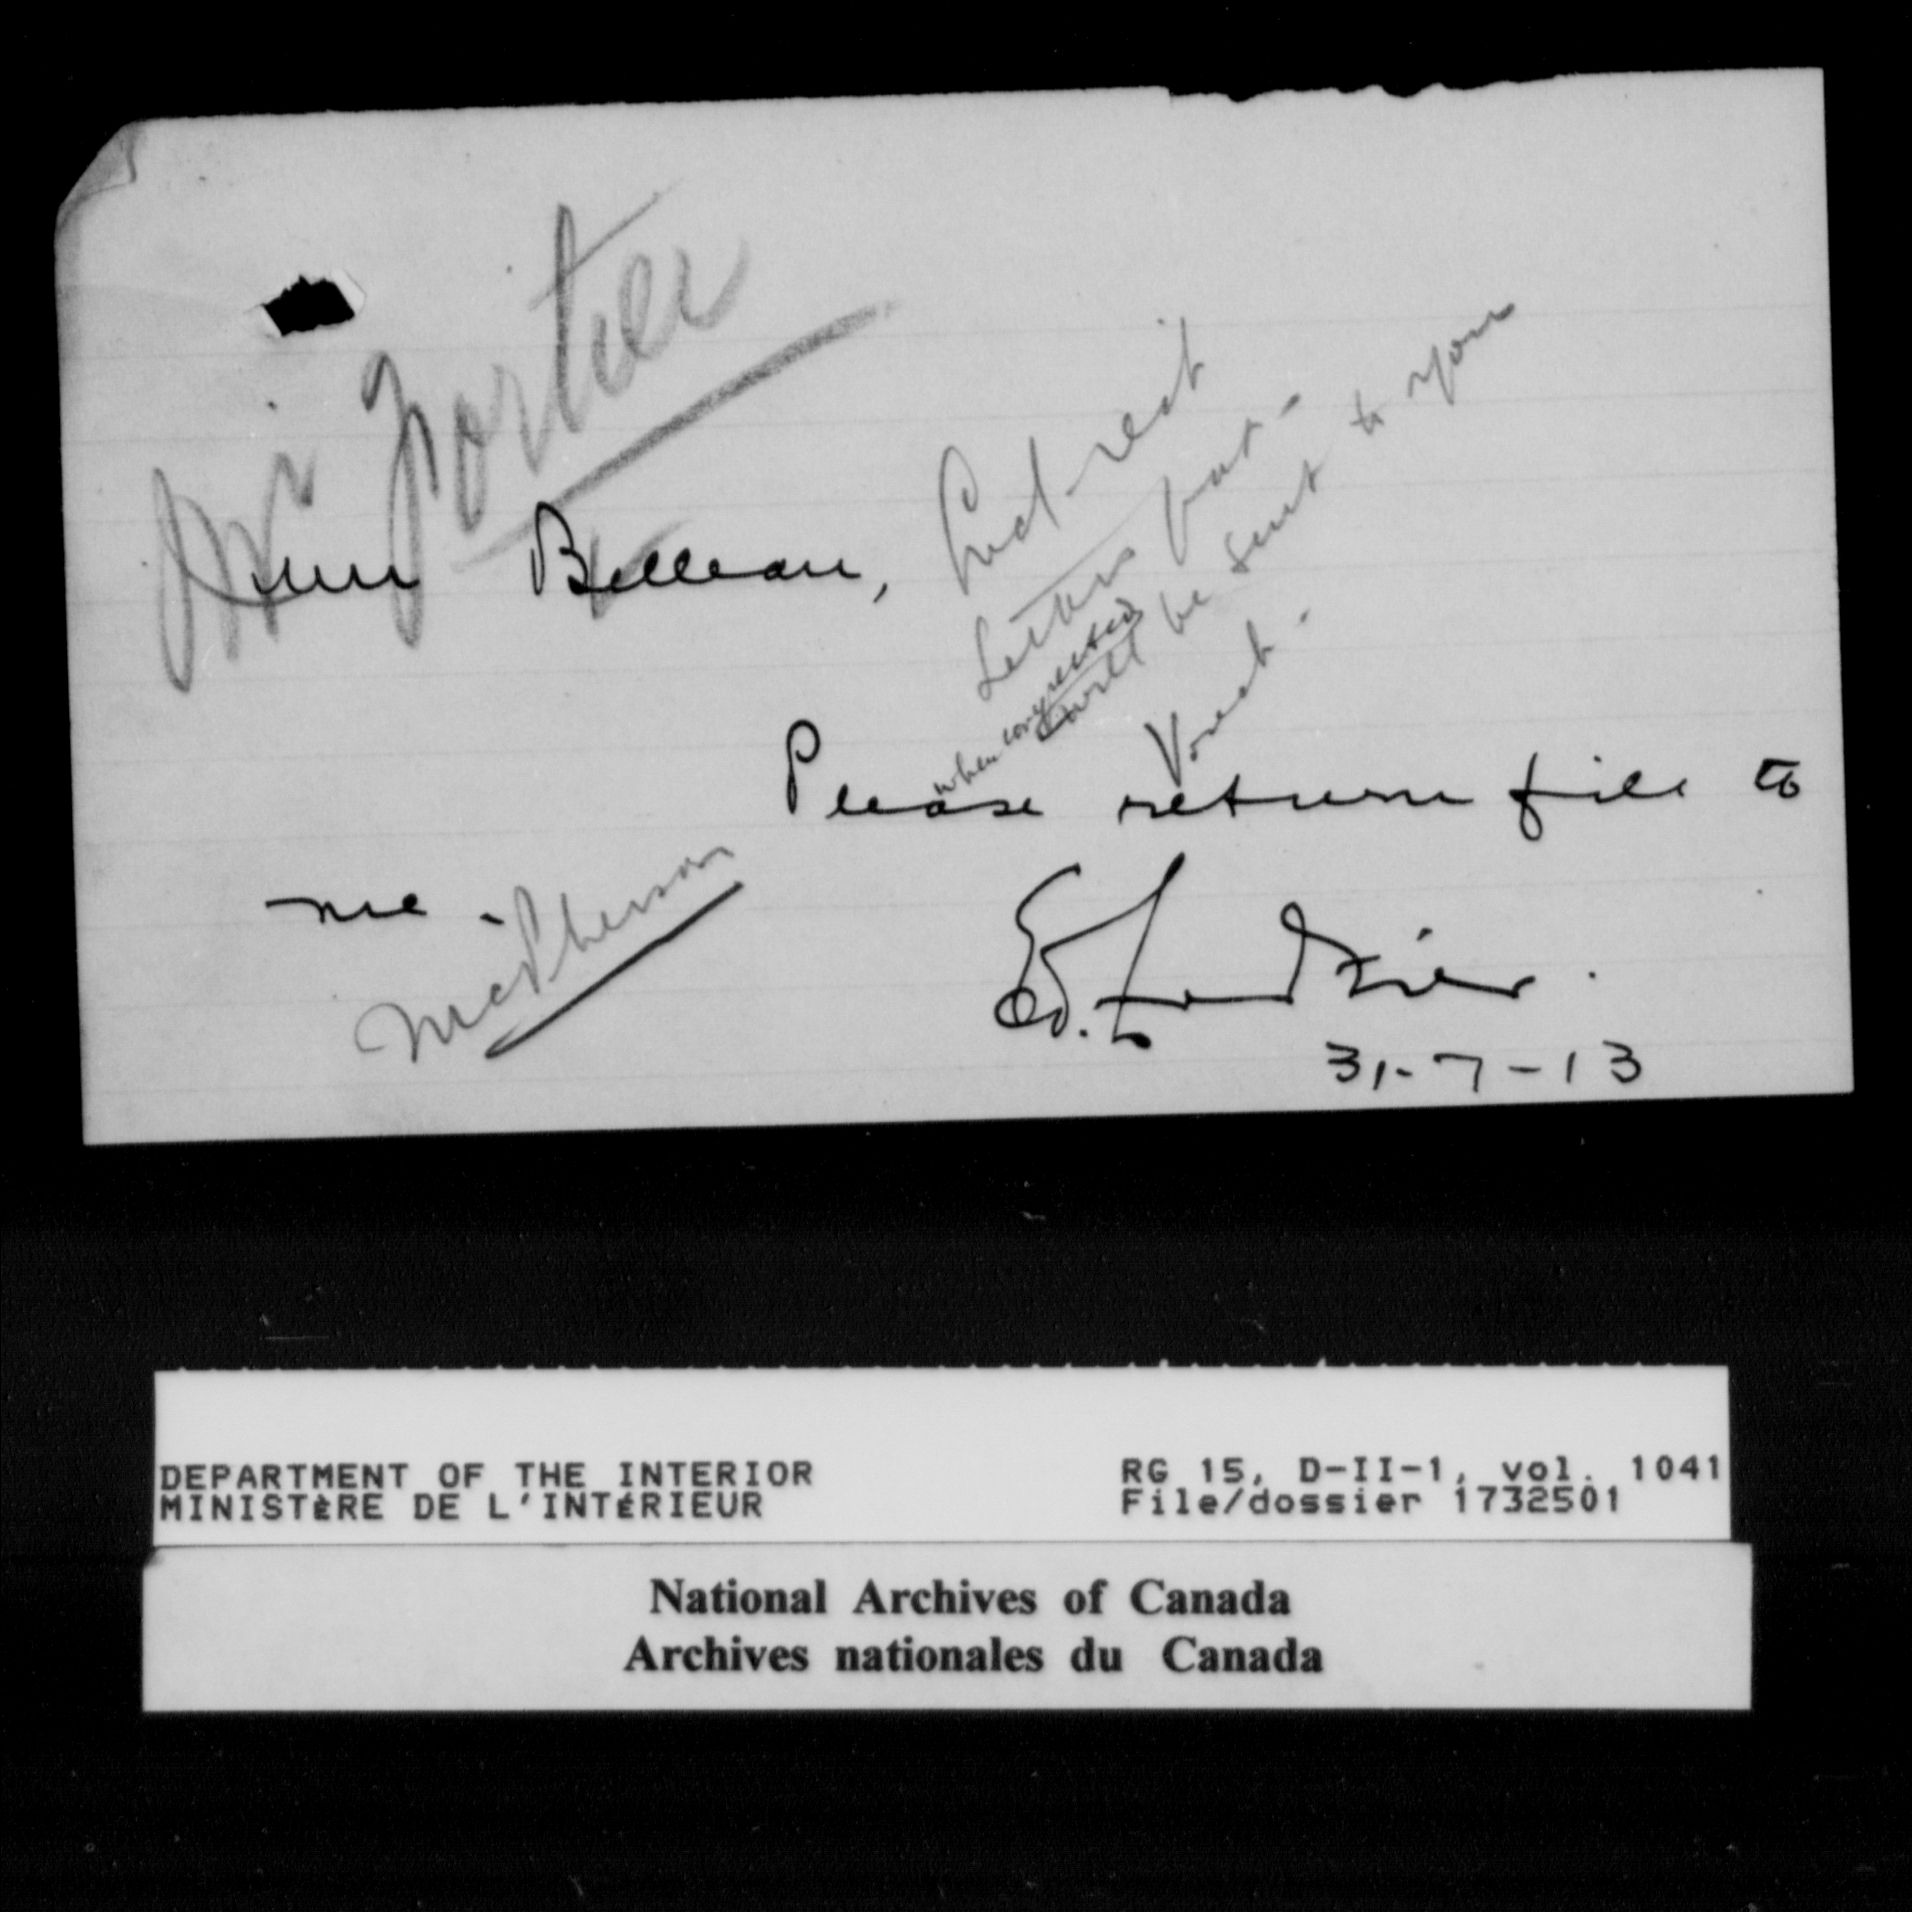 Mr Fortier
Miss Belleau,
Letters but
when completed
will be sent to you
Please return file to
me.
McPherson
31-7-13
DEPARTMENT OF THE INTERIOR
MINISTÈRE DE L'INTÉRIEUR
RG 15, D-II-1, vol. 1041
File/dossier 1732501
National Archives of Canada
Archives nationales du Canada